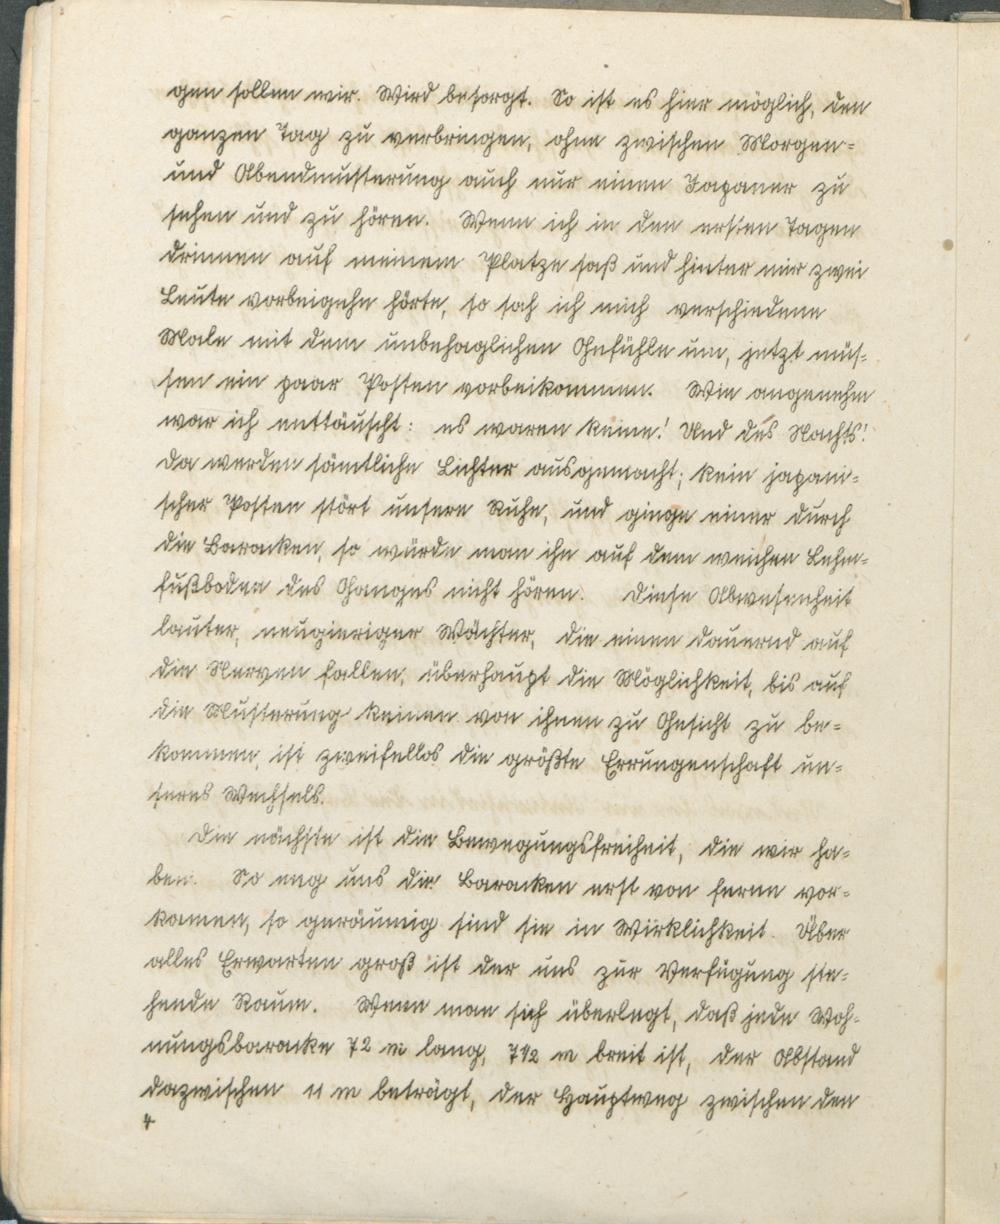 gen sollen wir. Wird besorgt. So ist es hier möglich, den
ganzen Tag zu verbringen, ohne zwischen Morgen-
und Abendmusterung auch nur einen Japaner zu
sehen und zu hören. Wenn ich in den ersten Tagen
drinnen auf meinem Platze saß und hinter mir zwei
Leute vorbeigehn hörte, so sah ich mich verschiedene
Male mit dem unbehaglichen Gefühle um, jetzt müs-
sen ein paar Posten vorbeikommen. Wie angenehm
war ich enttäuscht: es waren keine! Und des Nachts!
Da werden sämtliche Lichter ausgemacht; kein japani-
scher Posten stört unsere Ruhe, und ginge einer durch
die Baracken, so würde man ihn auf dem weichen Lehm-
fußboden des Ganges nicht hören. Diese Abwesenheit
lauter, neugieriger Wächter, die einen dauernd auf
die Nerven fallen, überhaupt die Möglichkeit, bis auf
die Musterung keinen von ihnen zu Gesicht zu be-
kommen, ist zweifellos die größte Errungenschaft un-
seres Wechsels.
Die nächste ist die Bewegungsfreiheit, die wir ha-
ben. So eng uns die Baracken erst von ferne vor-
kamen, so geräumig sind sie in Wirklichkeit. Über
alles Erwarten groß ist der uns zur Verfügung ste-
hende Raum. Wenn man sich überlegt, daß jede Woh-
nungsbaracke 72 m lang, 7½ m breit ist, der Abstand
dazwischen 11 m beträgt, der Hauptweg zwischen den
4